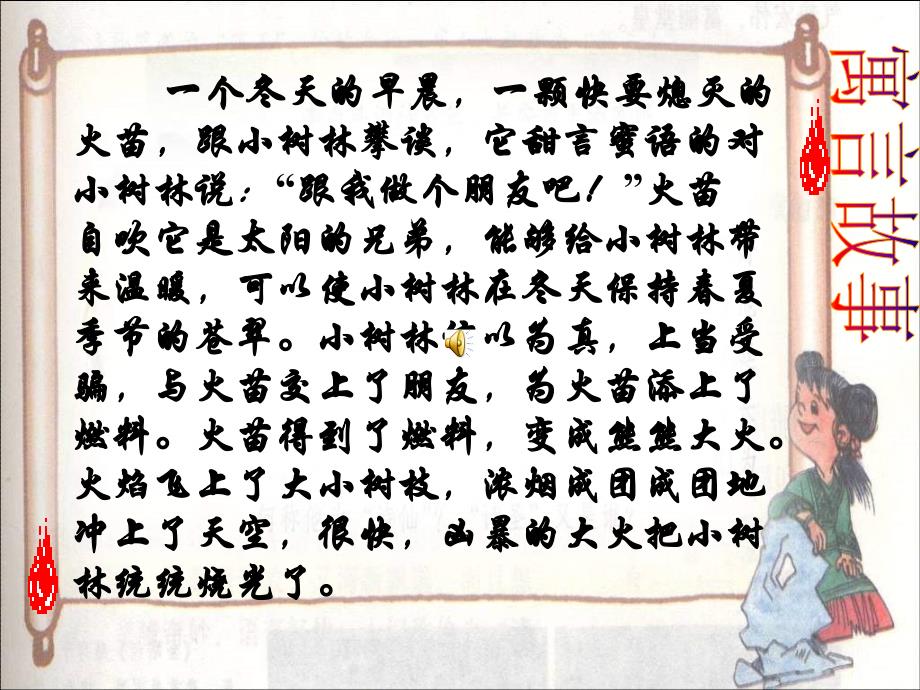 寓言故事
一个冬天的早晨，一颗快要熄灭的
火苗，跟小树林攀谈，它甜言蜜语的对
小树林说：“跟我做个朋友吧！”火苗
自吹它是太阳的兄弟，能够给小树林带
来温暖，可以使小树林在冬天保持春夏
季节的苍翠。小树林以为真，上当受
骗，与火苗交上了朋友，为火苗添上了
燃料。火苗得到了燃料，变成熊熊大火。
火焰飞上了大小树枝，浓烟成团成团地
冲上了天空，很快，凶暴的大火把小树
林统统烧光了。